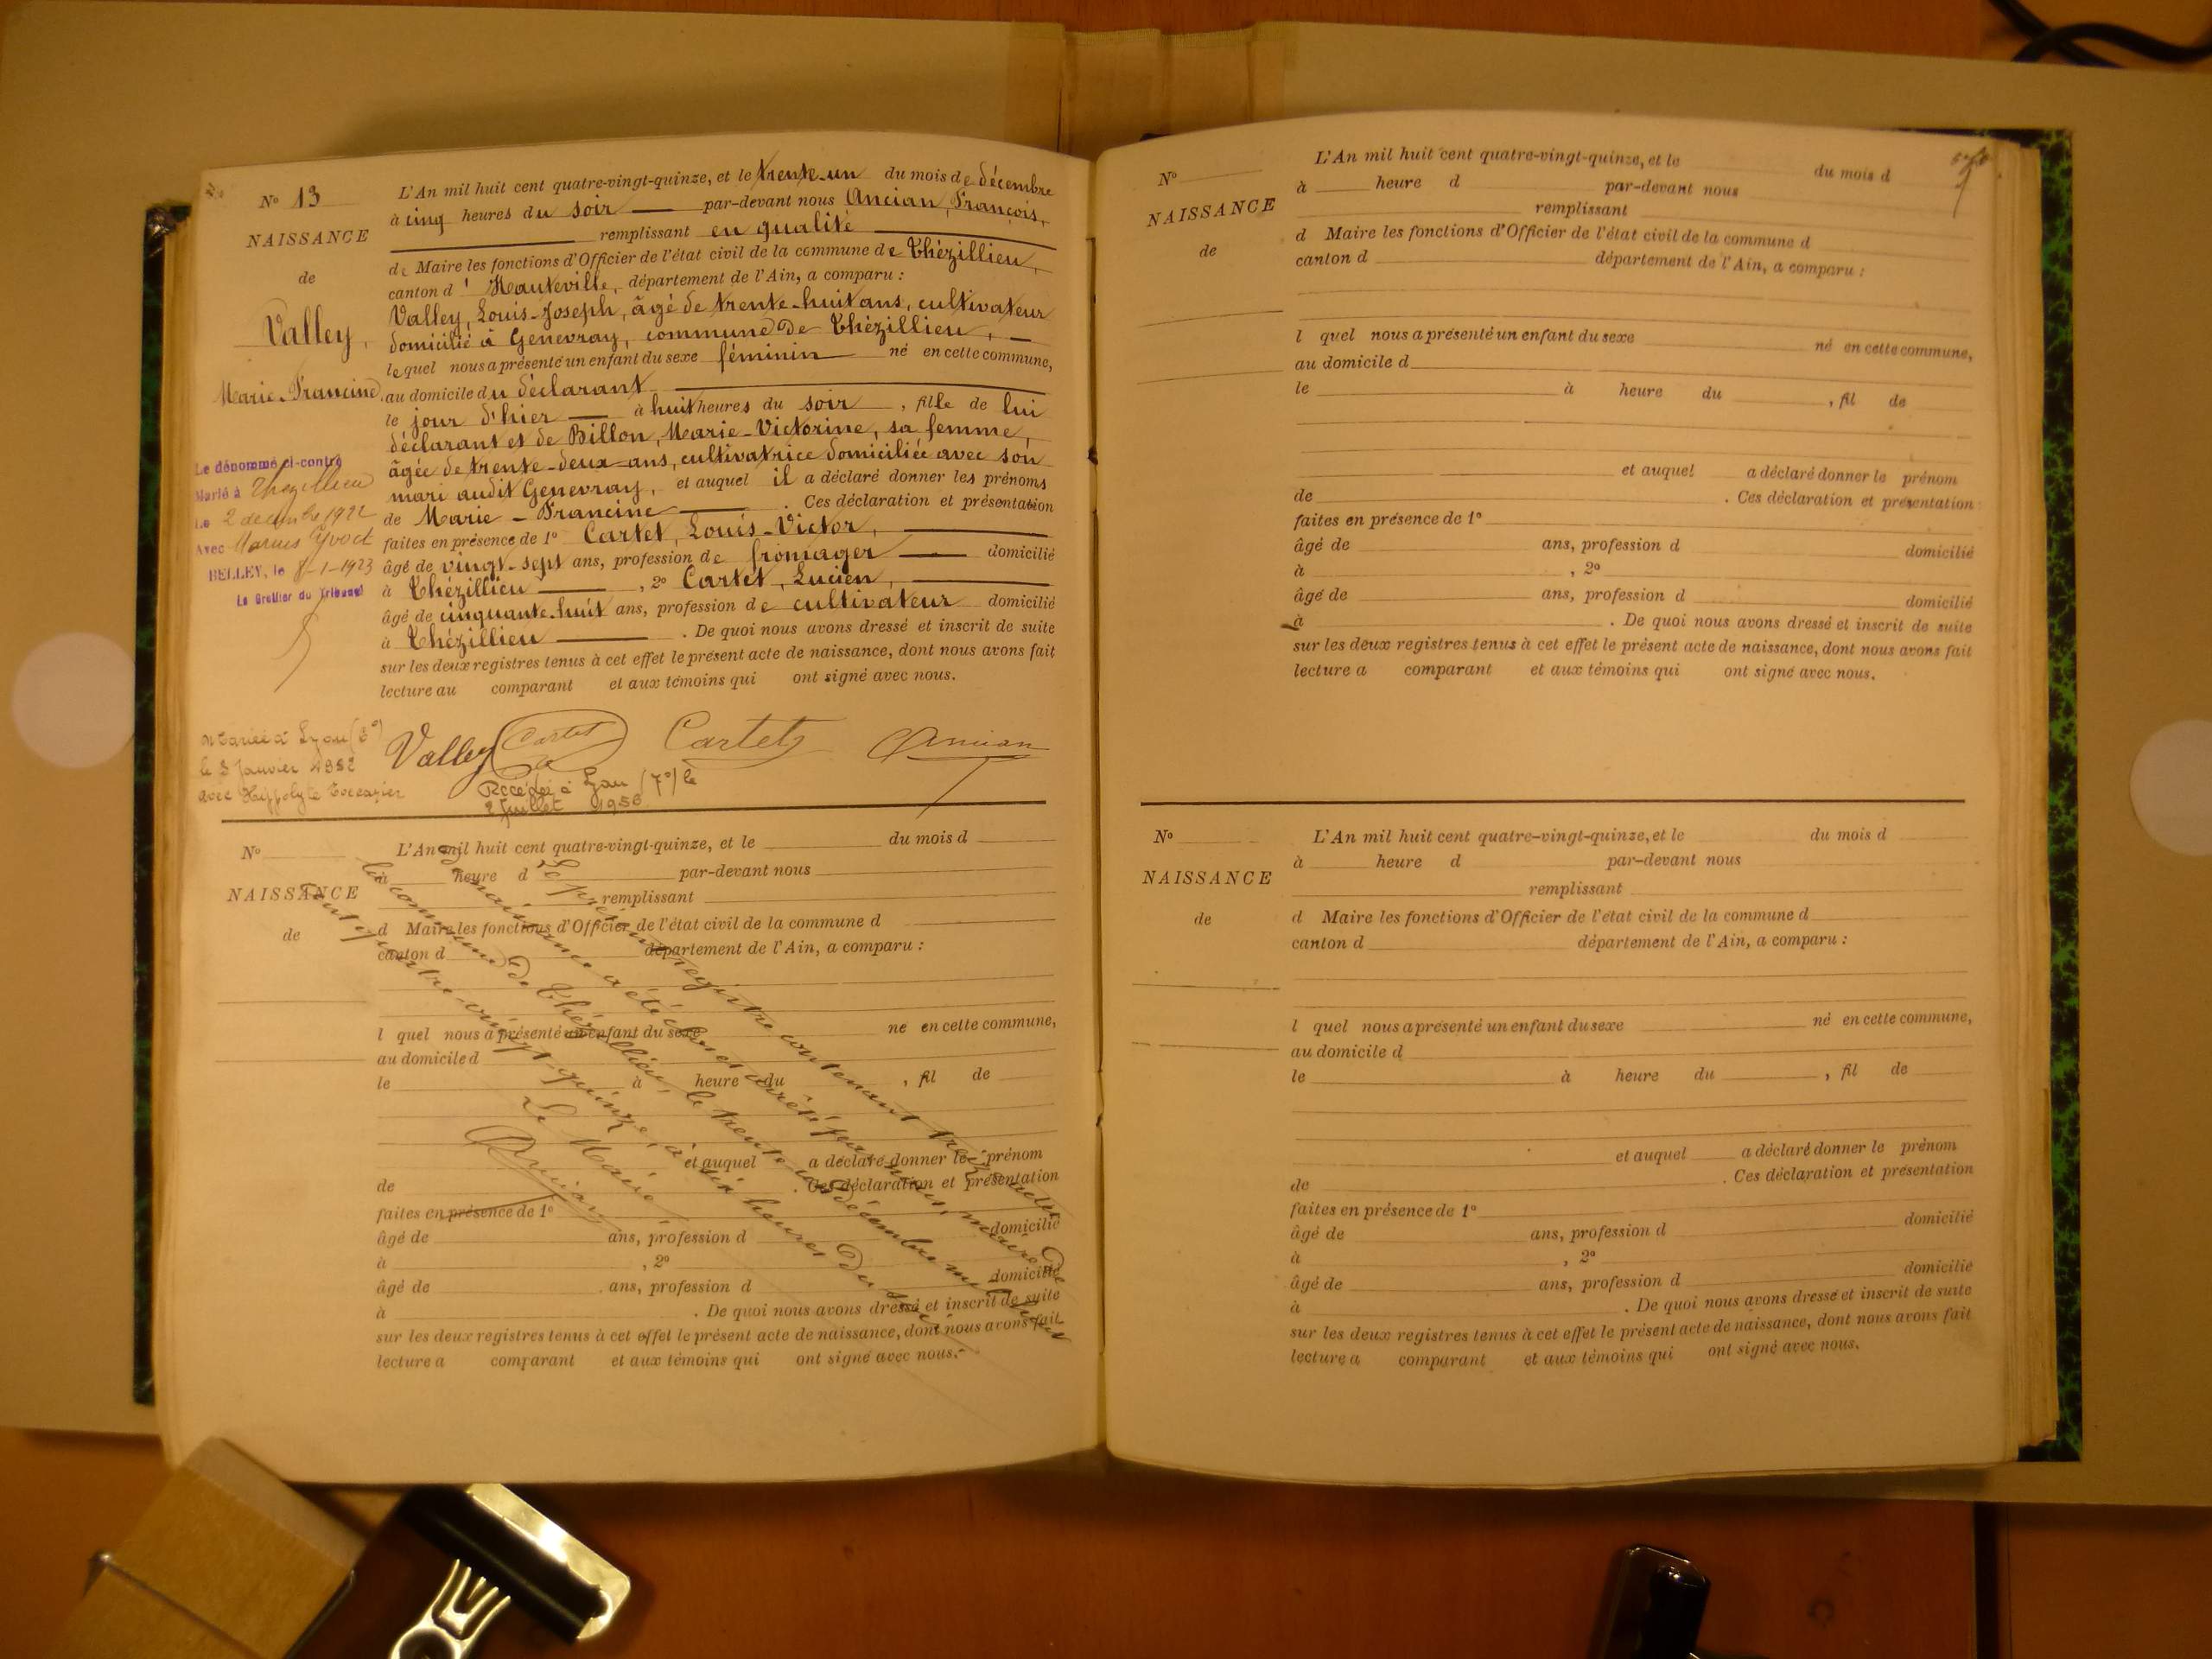 N° 13
NAISSANCE
de
Valley,
Marie-Francine.
L'An mil huit cent quatre-vingt-quinze, et le trente-un du mois de décembre
à cinq heures du soir par-devant nous Ancian, François,
remplissant en qualité
de Maire les fonctions d'Officier de l'état civil de la commune de Thézillieu,
canton d'Hauteville, département de l'Ain, a comparu :
Valley, Louis-Joseph, âgé de trente-huit ans, cultivateur
domicilié à Genevray, commune de Thézillieu,
lequel nous a présenté un enfant du sexe féminin né en cette commune,
au domicile du déclarant
le jour d'hier à huit heures du soir, fille de lui
déclarant et de Billon, Marie-Victorine, sa femme,
âgée de trente-deux ans, cultivatrice domiciliée avec son
mari audit Genevray, et auquel il a déclaré donner les prénoms
de Marie-Francine. Ces déclaration et présentation
faites en présence de 1° Cartet, Louis-Victor,
âgé de vingt-sept ans, profession de fromager domicilié
à Thézillieu, 2° Cartet, Lucien,
âgé de cinquante-huit ans, profession de cultivateur domicilié
à Thézillieu. De quoi nous avons dressé et inscrit de suite
sur les deux registres tenus à cet effet le présent acte de naissance, dont nous avons fait
lecture au comparant et aux témoins qui ont signé avec nous.
Le dénommé ci-contre
Marié à Thezillieu
Le 2 decembre 1922
Avec Marius Yvoct
BELLEY, le 8-1-1923
Le Greffier du Tribunal
Valley Cartet Cartet Ancian
Mariée à Lyon
le 3 Janvier 1952
avec Hippolyte
Décédée à Lyon (7°) le
2 Juillet 1956
N°
NAISSANCE
de
L'An mil huit cent quatre-vingt-quinze, et le du mois d
à heure d par-devant nous
remplissant
d Maire les fonctions d'Officier de l'état civil de la commune d
canton d département de l'Ain, a comparu :
l quel nous a présenté un enfant du sexe né en cette commune,
au domicile d
le à heure du , fil de
et auquel a déclaré donner le prénom
de . Ces déclaration et présentation
faites en présence de 1°
âgé de ans, profession d domicilié
à , 2°
âgé de ans, profession d domicilié
à . De quoi nous avons dressé et inscrit de suite
sur les deux registres tenus à cet effet le présent acte de naissance, dont nous avons fait
lecture a comparant et aux témoins qui ont signé avec nous.
Le présent registre contenant treize actes
de naissance a été clos et arrêté par nous, maire de
la commune de Thézillieu, le trente un décembre mil huit cent
quatre-vingt-quinze, à six heures du soir
Le Maire
Ancian
N°
NAISSANCE
de
L'An mil huit cent quatre-vingt-quinze, et le du mois d
à heure d par-devant nous
remplissant
d Maire les fonctions d'Officier de l'état civil de la commune d
canton d département de l'Ain, a comparu :
l quel nous a présenté un enfant du sexe né en cette commune,
au domicile d
le à heure du , fil de
et auquel a déclaré donner le prénom
de . Ces déclaration et présentation
faites en présence de 1°
âgé de ans, profession d domicilié
à , 2°
âgé de ans, profession d domicilié
à . De quoi nous avons dressé et inscrit de suite
sur les deux registres tenus à cet effet le présent acte de naissance, dont nous avons fait
lecture a comparant et aux témoins qui ont signé avec nous.
N°
NAISSANCE
de
L'An mil huit cent quatre-vingt-quinze, et le du mois d
à heure d par-devant nous
remplissant
d Maire les fonctions d'Officier de l'état civil de la commune d
canton d département de l'Ain, a comparu :
l quel nous a présenté un enfant du sexe né en cette commune,
au domicile d
le à heure du , fil de
et auquel a déclaré donner le prénom
de . Ces déclaration et présentation
faites en présence de 1°
âgé de ans, profession d domicilié
à , 2°
âgé de ans, profession d domicilié
à . De quoi nous avons dressé et inscrit de suite
sur les deux registres tenus à cet effet le présent acte de naissance, dont nous avons fait
lecture a comparant et aux témoins qui ont signé avec nous.